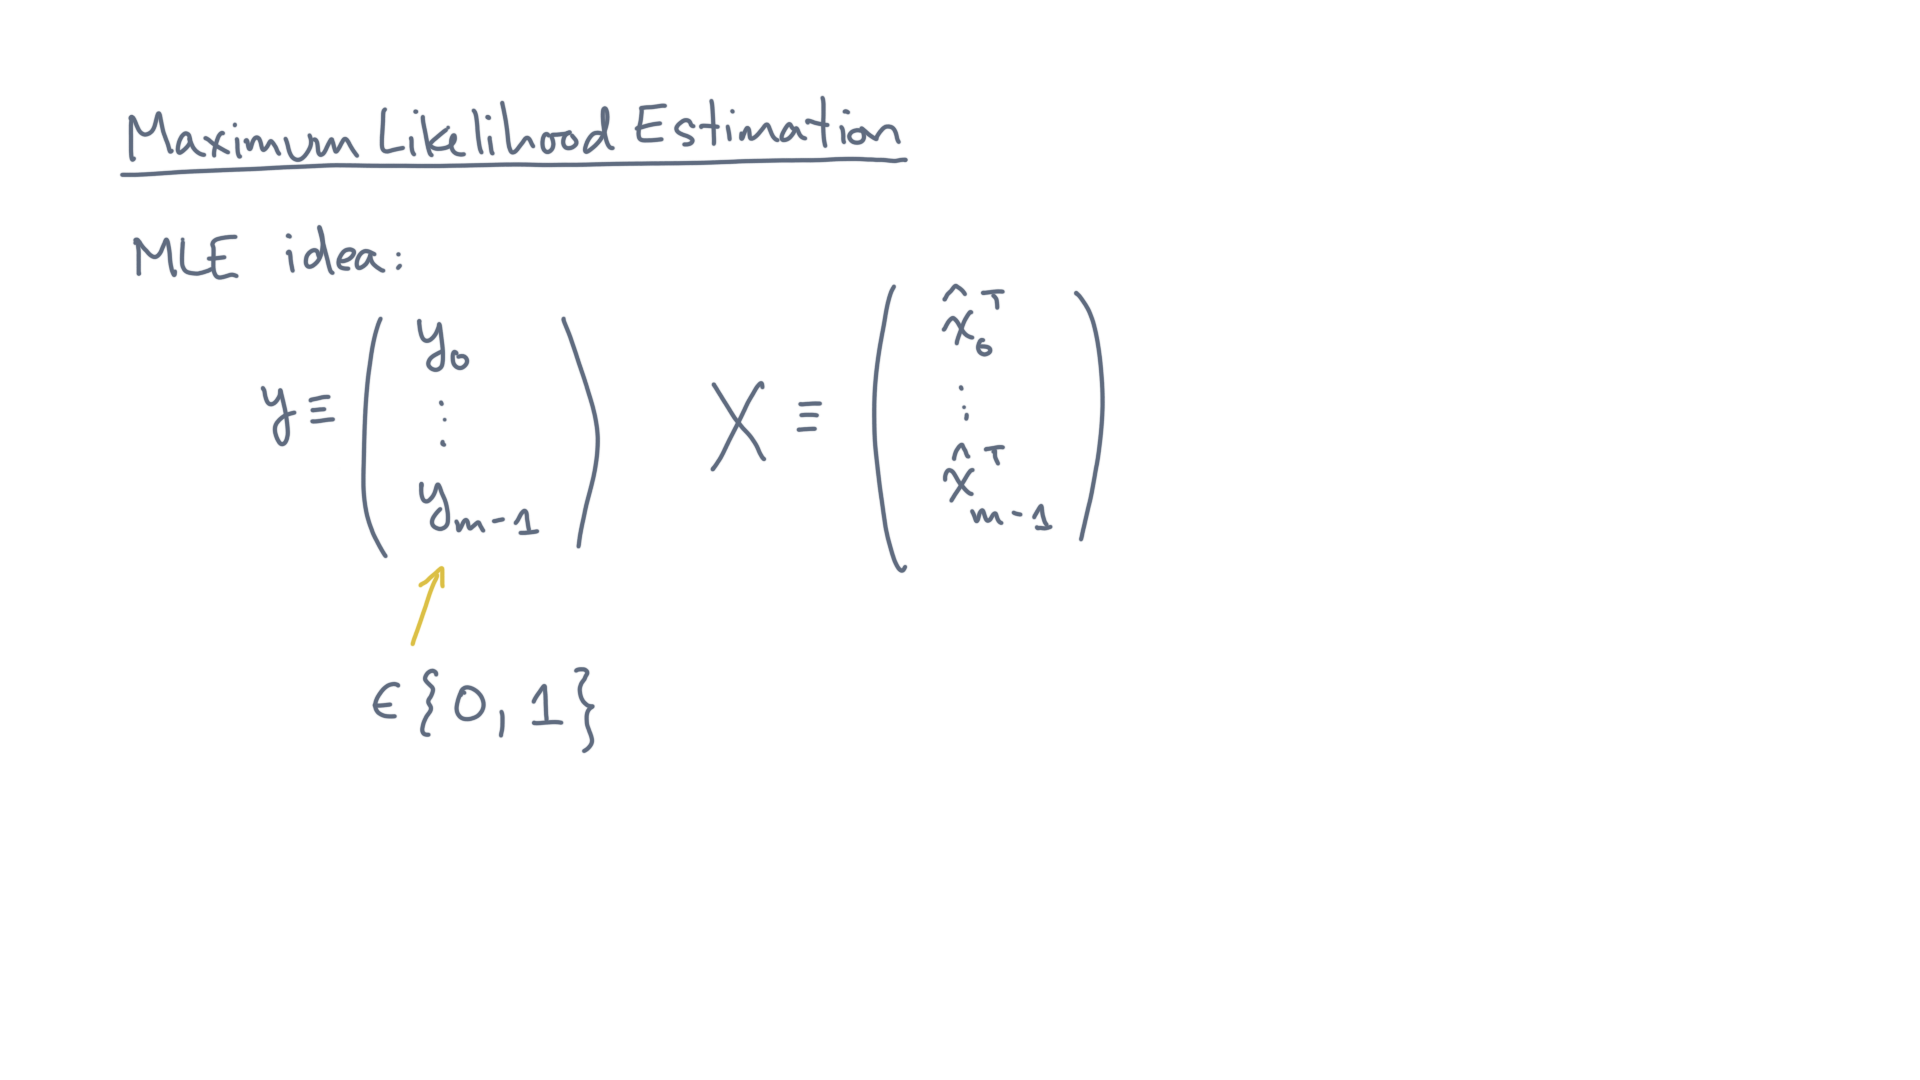 Maximum Likelihood Estimation
MLE idea:
y ≡ ( y₀ ⋮ yₘ₋₁ ) X ≡ ( x̂₀ᵀ ⋮ x̂ₘ₋₁ᵀ )
∈ {0, 1}